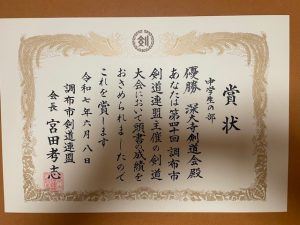 剣
賞状
中学生の部
優勝 深大寺剣道会殿
あなたは第四十回 調布市
剣道連盟主催の剣道
大会において頭書の成績を
おさめられましたので
これを賞します
令和七年六月八日
調布市剣道連盟
会長 宮田孝志